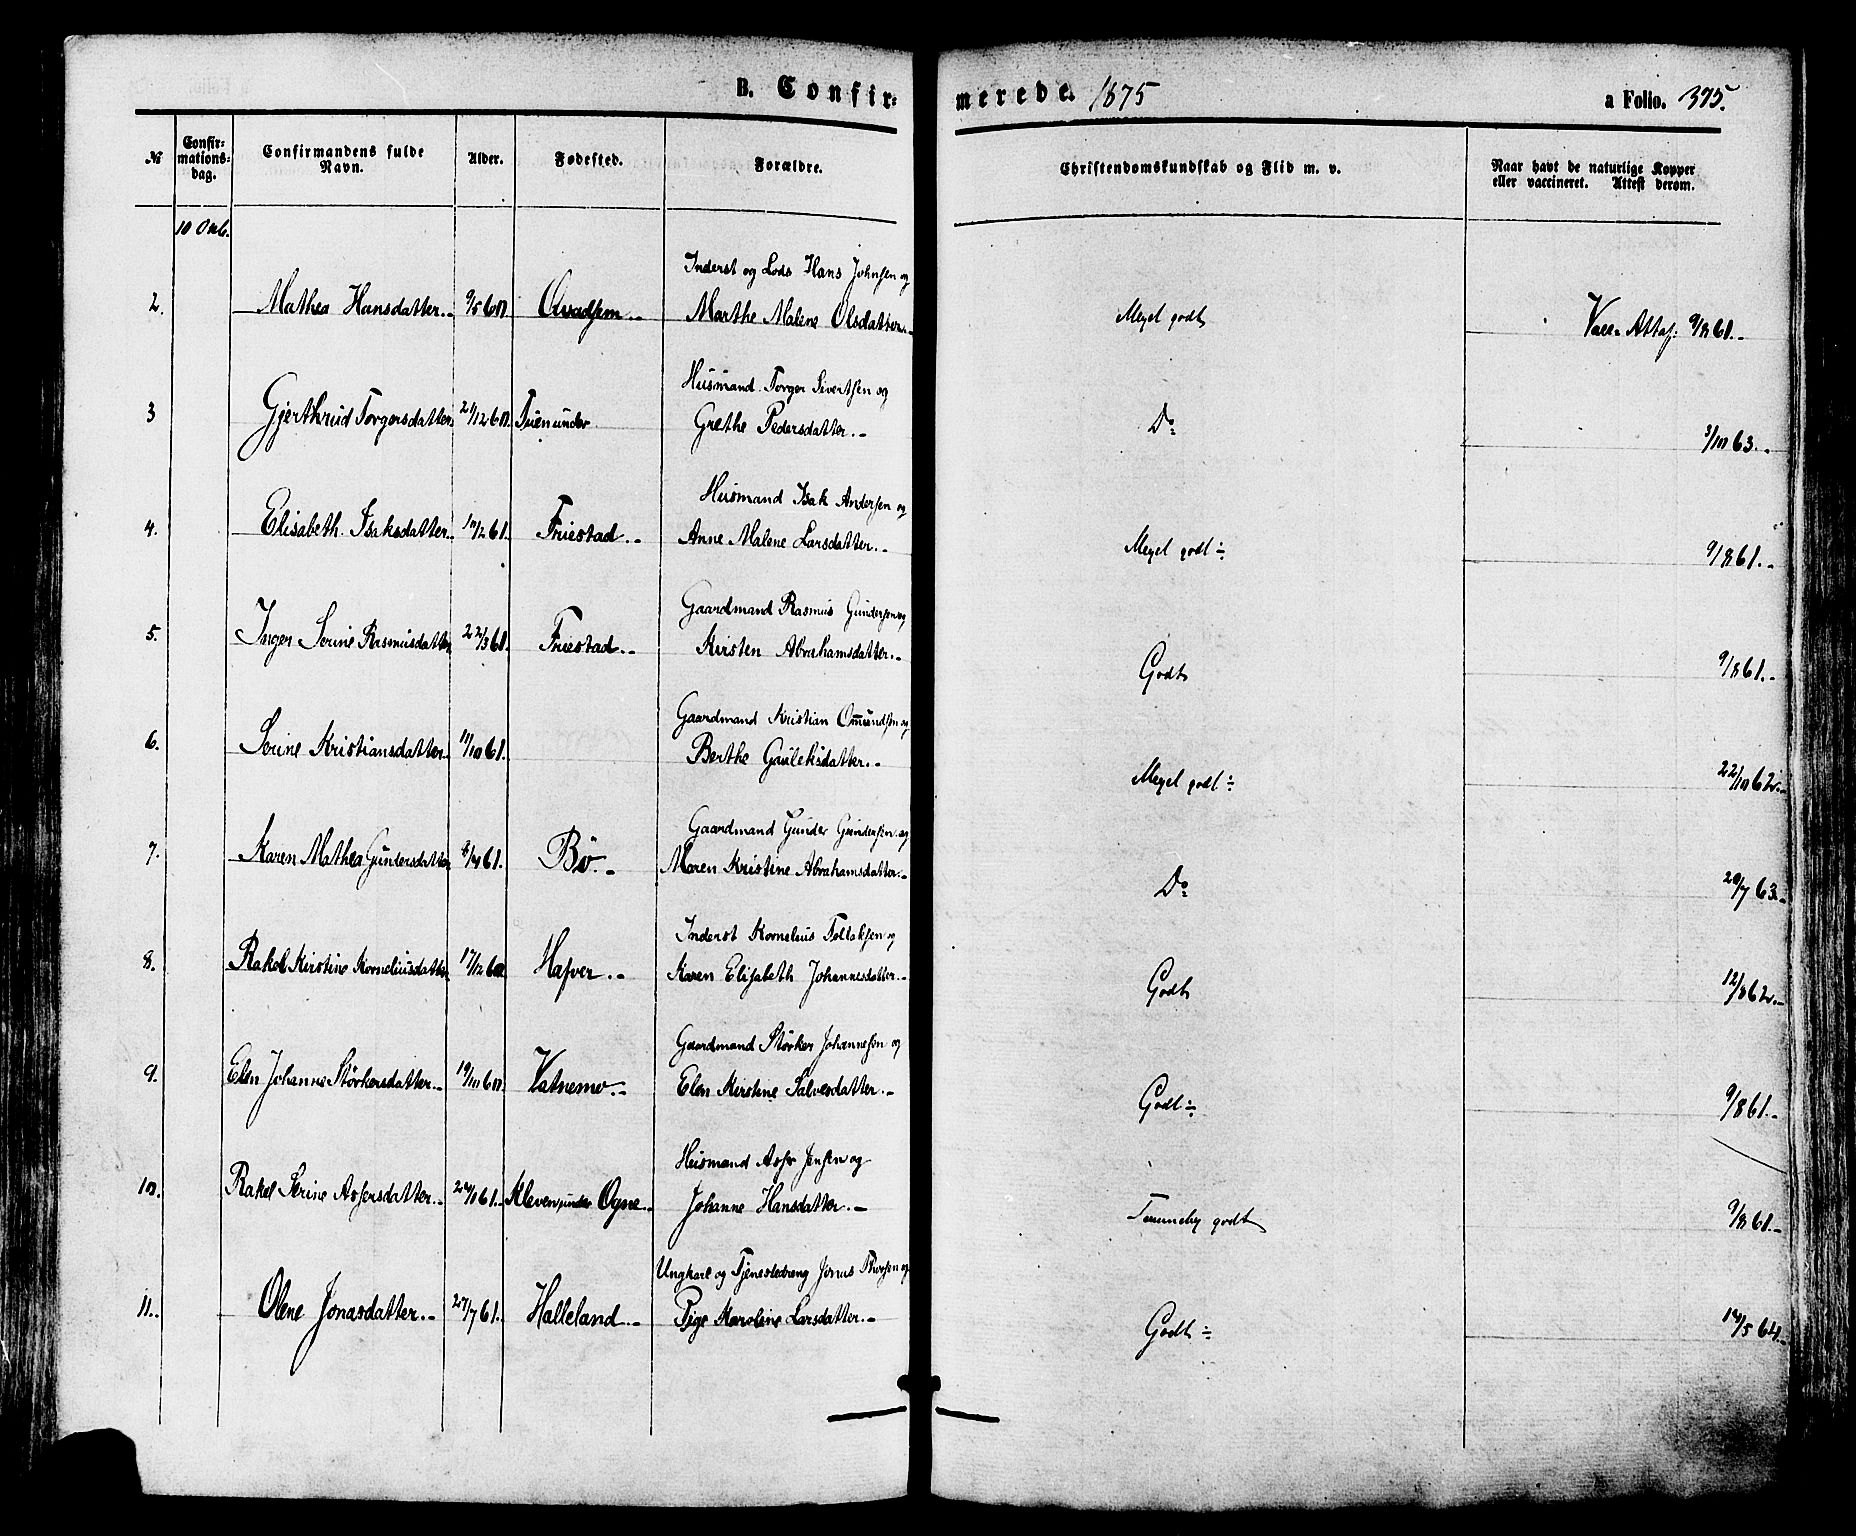 B. Confir-
merede. 1875
a Folio. 375.
№
Confir-
mations-
dag.
Confirmandens fulde
Navn.
Alder.
Fødested.
Forældre.
Christendomskundskab og Flid m. v.
Naar havt de naturlige Kopper
eller vaccineret. Attest derom.
10 Oct.
Inderst og Lods Hans Johnsen og
2. Mathea Hansdatter.- 9/5 60 Marthe Malene Olsdatter.-
Meget godt
Vacc. Attest: 9/8 61.-
Husmand Torger Sivertsen og
3 Gjerthrud Torgersdatter 21/12 60 Grethe Pedersdatter.-
Do
3/10 63.-
Husmand Isak Andersen og
4. Elisabeth Isaksdatter.- 10/2 61. Friestad.- Anne Malene Larsdatter.-
Meget godt ÷
9/8 61.-
Gaardmand Rasmus Gundersen og
5. Inger Serine Rasmusdatter 22/3 61. Friestad.- Kirsten Abrahamsdatter.-
Godt
9/8 61.-
Gaardmand Kristian Omundsen og
6. Serine Kristiansdatter 11/10 61. Berthe Gauleksdatter.-
Meget godt ÷
22/10 62.-
Gaardmand Gunder Gundersen og
7. Karen Mathea Gundersdatter 61. Bö.- Maren Kristine Abrahamsdatter.-
Do
20/7 63.-
Inderst Kornelius Tollaksen og
8. Rakel Kirstine Korneliusdatter 17/12 60 Hafver.- Karen Elisabeth Johannesdatter.-
Godt
12/8 62.-
Gaardmand Störker Johannesen og
9. Elen Johanne Störkersdatter.- 19/10 60. Vatnemo.- Elen Kirstine Salvesdatter.-
Godt ÷
9/8 61.-
Husmand Asser Jensen og
10. Rakel Serine Assersdatter.- 61. Kleven under Ogne.- Johanne Hansdatter.-
Temmelig godt
9/8 61.-
Ungkarl og Tjenestedreng Jonas og
11. Olene Jonasdatter.- 27/7 61. Halleland.- Pige Karoline Larsdatter.-
Godt ÷
5 64.-